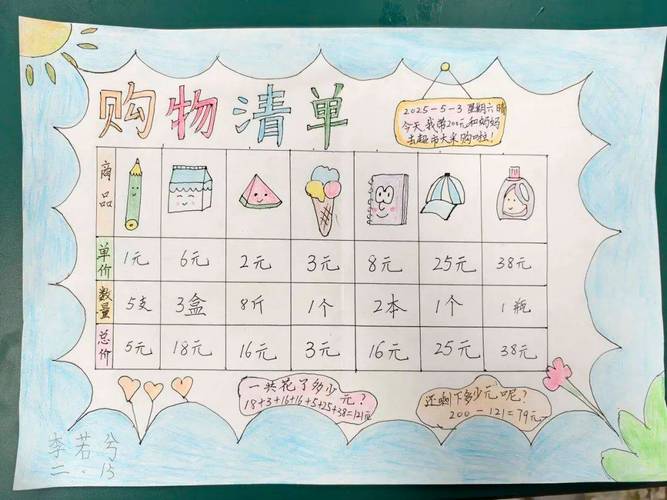 购物清单
2025-5-3 星期六 晴
今天我带200元和妈妈
去超市大采购啦!
商品
单价 1元 6元 2元 3元 8元 25元 38元
数量 5支 3盒 8斤 1个 2本 1个 1瓶
总价 5元 18元 16元 3元 16元 25元 38元
一共花了多少元?
18+3+16+16+5+25+38=121元
还剩下多少元呢?
200-121=79元
李若兮
二.15